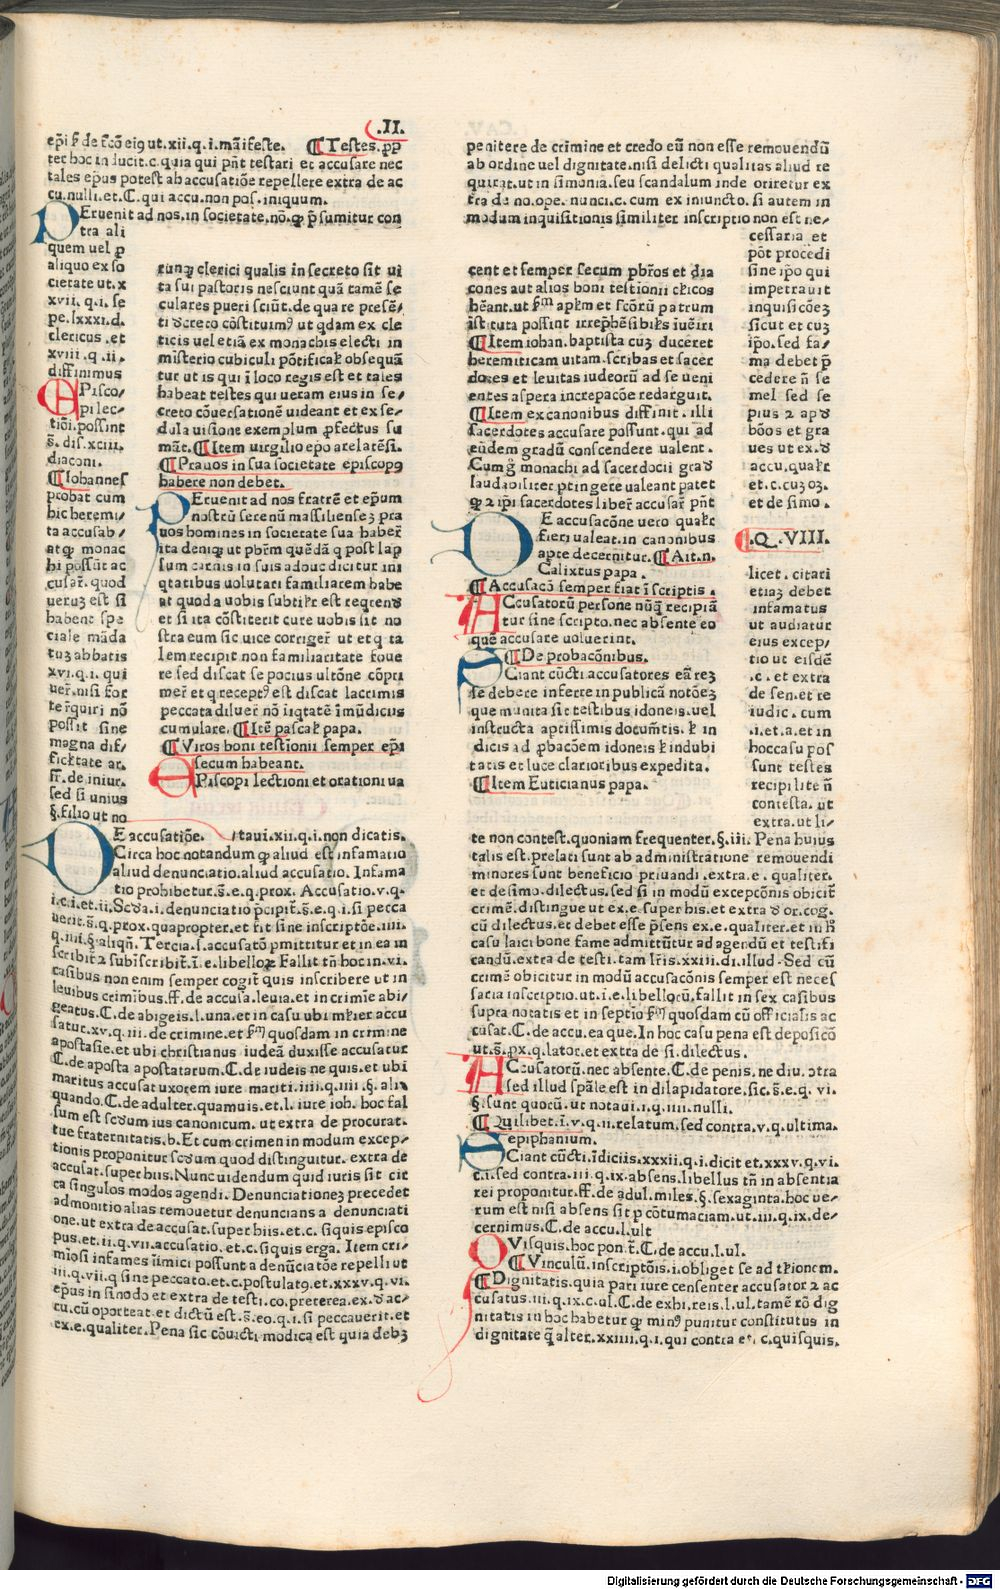 .II.
ep̄i ẜ de fcō ei9 ut.xii.q.i.māifeste. ¶ Testes.ꝓp
ter hoc inducit.c.quia qui pn̄t testari et accusare nec
tales ep̄us potest ab accusatiōe repellere extra de ac
cu.nulli.et.C.qui accu.non pos.iniquum.
PEruenit ad nos.in societate.nō.ꝙ p̄sumitur con
tra ali
quem uel ꝑ
aliquo ex so
cietate ut.x
xvii.q.i.se
pe.lxxxi.d.
clericus.et
xviii.q.ii.
diffinimus
EPisco/
pi lec/
tiōi.possint
s̄.dis.xciii.
diaconi.
¶ Iohannes
probat cum
hic heremi/
ta accusab/
atꝙ monac
hi possūt ac
cusar̄.quod
ueruꝫ est si
habent spe
ciale māda
tuꝫ abbatis
xvi.q.i.qui
uer̄.nisi for
te r̄quiri nō
possit sine
magna dif/
ficltate ar.
ff.de iniur.
sed si unius
§.filio ut no
runqꝫ clerici qualis in secreto sit ui
ta sui pastoris nesciunt quā tamē se
culares pueri sciūt.de qua re presē/
ti decreto cōstituim9 ut qdam ex cle
ricis uel etiā ex monachis electi in
misterio cubiculi pōtificalꝭ obsequā
tur ut is qui ī loco regis est et tales
habeat testes qui ueram eius in se/
creto cōuersationē uideant et ex se/
dula uisione exemplum ꝓfectus su
māt. ¶ Item uirgilio epo arelatēsi.
¶ Prauos in sua societate episcop9
habere non debet.
PEruenit ad nos fratrē et ep̄um
nostrū serenū massilienseꝫ pra
uos homines in societate sua haber̄
ita deniqꝫ ut pbr̄m quēdā q post lap
sum carnis in suis adhuc dicitur ini
qtatibus uolutari familiarem habe
at quod a uobis subtilr̄ est reqrend
et si ita cōstiterit cure uobis sit no
stra eum sic uice corriger̄ ut et q ta
lem recipit non familiaritate foue
re sed discat se pocius ultōne cōpri
mer̄ et q recept9 est discat lacrimis
peccata diluer̄ nō īiqtatē īmūdicius
cumulare. ¶ Itē pascal̄ papa.
¶ Viros boni testīonii semper ep̄i
secum habeant.
EPiscopi lectioni et orationi ua
DE accusatiōe. /taui.xii.q.i.non dicatis.
Circa hoc notandum ꝙ aliud est infamatio
aliud denunciatio.aliud accusatio. Infama
tio prohibetur.s̄.e.q.prox. Accusatio.v.q.
i.c.i.et.ii. Scd̄a.i.denunciatio p̄cipit̄.s̄.e.q.i.si pecca
uerit.s̄.q.prox.quapropter.et fit sine inscriptōe.iiii.
q.iiii.§.aliqn̄. Tercia.s.accusatō ꝑmittitur et in ea in
scribit̄ ⁊ subīscribit̄.ī.e.libelloꝝ. Fallit tn̄ hoc in.vi.
casibus non enim semper cogit̄ quis inscribere ut in
leuibus crimībus.ff.de accusa.leuia.et in crimīe abi/
geatus.C.de abigeis.l.una.et in casu ubi ml̓ier accu
satur.xv.q.iii.de crimine.et ẜm quosdam in crimine
apostasie.et ubi christianus iudeā duxisse accusatur
C.de aposta apostatarum.C.de iudeis ne quis.et ubi
maritus accusat uxorem iure mariti.iiii.q.iiii.§.ali/
quando.C.de adulter.quamuis.et.l. iure ioh. hoc fal
sum est scd̄um ius canonicum. ut extra de procurat.
tue fraternitatis.b. Et cum crimen in modum excep/
tionis proponitur scd̄um quod distinguitur. extra de
accusat. super hiis. Nunc uidendum quid iuris sit cir
ca singulos modos agendi. Denunciationeꝫ precedet
admonitio alias remouetur denuncians a denunciati
one.ut extra de accusat.super hiis.et.c. siquis episco
pus.et.ii.q.vii.accusatio.et.c.siquis erga. Item cri/
mīosi infames īimici possunt a denūciatōe repelli ut
iii.q.vii.q sine peccato.et.c.postulat9.et.xxxv.q.vi.
ep̄us in sinodo et extra de testi.co.preterea.ex.d̄ ac/
cu.cū oporteat et dictū est.s̄.eo.q.i.si peccauerit.et
ex.e.qualiter. Pena sic cōuicti modica est quia debꝫ
penitere de crimine et credo eū non esse remouendū
ab ordine uel dignitate.nisi delicti qualitas aliud re
quirat.ut in simonia.seu scandalum inde oriretur ex
tra de no.ope.nunci.c. cum ex iniuncto. si autem in
modum inquisitionis similiter inscriptio non est ne/
cessaria et
pōt procedi
sine ip̄o qui
impetrauit
inquisicōeꝫ
sicut et cuꝫ
ip̄o.sed fa/
ma debet p̄
cedere n̄ se
mel sed se
pius ⁊ apd
bōos et gra
ues ut ex.d̄
accu.qualr̄
et.c.cuꝫ oꝫ.
et de simo.
licet. citari
etiaꝫ debet
infamatus
ut audiatur
eius excep/
tio ut eisdē
.c. et extra
de sen.et re
iudic. cum
.i.et.a.et in
hoc casu pos
sunt testes
recipi lite n̄
contesta. ut
extra.ut li/
cent et semper secum pbr̄os et dia
cones aut alios boni testīonii cl̄icos
hēant.ut ẜm apl̄m et scōrū patrum
istituta possint irrep̄hēsibil̄s īuēiri
¶ Item iohan.baptista cuꝫ duceret
heremiticam uitam.scribas et sacer
dotes et leuitas iudeorū ad se ueni
entes aspera increpacōe redarguit.
¶ Item ex canonibus diffinit.illi
sacerdotes accusare possunt.qui ad
eūdem gradū conscendere ualent.
Cum g̊ monachi ad sacerdocii grad
laudabiliter ptingere ualeant patet
ꝙ ⁊ ip̄i sacerdotes liber̄ accusar̄ pn̄t
.Q.VIII.
DE accusacōne uero qualr̄
fieri ualeat.in canonibus
apte decernitur. ¶ Ait.n.
Calixtus papa.
¶ Accusacō semper fiat ī scriptis.
ACcusatorū persone nūq̄ recipiā
tur sine scripto.nec absente eo
quē accusare uoluerint.
¶ De probacōnibus.
SCiant cūcti accusatores eā reꝫ
se debere inferre in publicā notōeꝫ
que munita sit testibus idoneis.uel
instructa aptissimis documētis.l̄ in
dicis ad ꝓbacōem idoneis l̄ indubi
tatis et luce clarioribus expedita.
¶ Item Euticianus papa.
te non contest.quoniam frequenter.§.iii. Pena huius
talis est.prelati sunt ab administratione remouendi
minores sunt beneficio priuandi.extra.e.qualiter.
et de simo.dilectus.sed si in modū excepcōnis obicit̄
crimē.distingue ut ex.e.super his.et extra d̄ or.cog.
cū dilectus.et debet esse p̄sens ex.e.qualiter.et in h̊
casu laici bone fame admittūtur ad agendū et testifi
candū.extra de testi.tam lr̄is.xxiii.di.illud. Sed cū
crimē obicitur in modū accusacōnis semper est neces
saria inscriptio.ut.ī.e.libellorū.fallit in sex casibus
supra notatis et in septīo ẜm quosdam cū officialis ac
cusat.C.de accu.ea que. In hoc casu pena est deposicō
ut.s̄.px.q.lator.et extra de si.dilectus.
ACcusatorū.nec absente.C.de penis.ne diu.ↄtra
sed illud sp̄ale.est in dilapidatore.sic.s̄.e.q.vi.
§.sunt quorū.ut notaui.ii.q.iiii.nulli.
¶ Quilibet.ī.v.q.ii.relatum.sed contra.v.q.ultima.
epiphanium.
SCiant cūcti.īdiciis.xxxii.q.i.dicit et.xxxv.q.vi.
c.i.sed contra.iii.q.ix.absens.libellus tn̄ in absentia
rei proponitur.ff.de adul.miles.§.sexaginta.hoc ue/
rum est nisi absens sit p cōtumaciam.ut.iii.q.ix.de/
cernimus.C.de accu.l.ult
QVisquis.hoc pon.t̄.C.de accu.l.ul.
¶ Vinculū.inscriptōis.i.obliget se ad tl̓ionem.
¶ Dignitatis.quia pari iure censenter accusator ⁊ ac
cusatus.iii.q.ix.c.ul.C.de exhi.reis.l.ul.tamē rō dig
nitatis in hoc habetur ꝙ min9 punitur constitutus in
dignitate q̄ alter.xxiiii.q.i.qui contra et.c.quisquis.
Digitalisierung gefördert durch die Deutsche Forschungsgemeinschaft - DFG